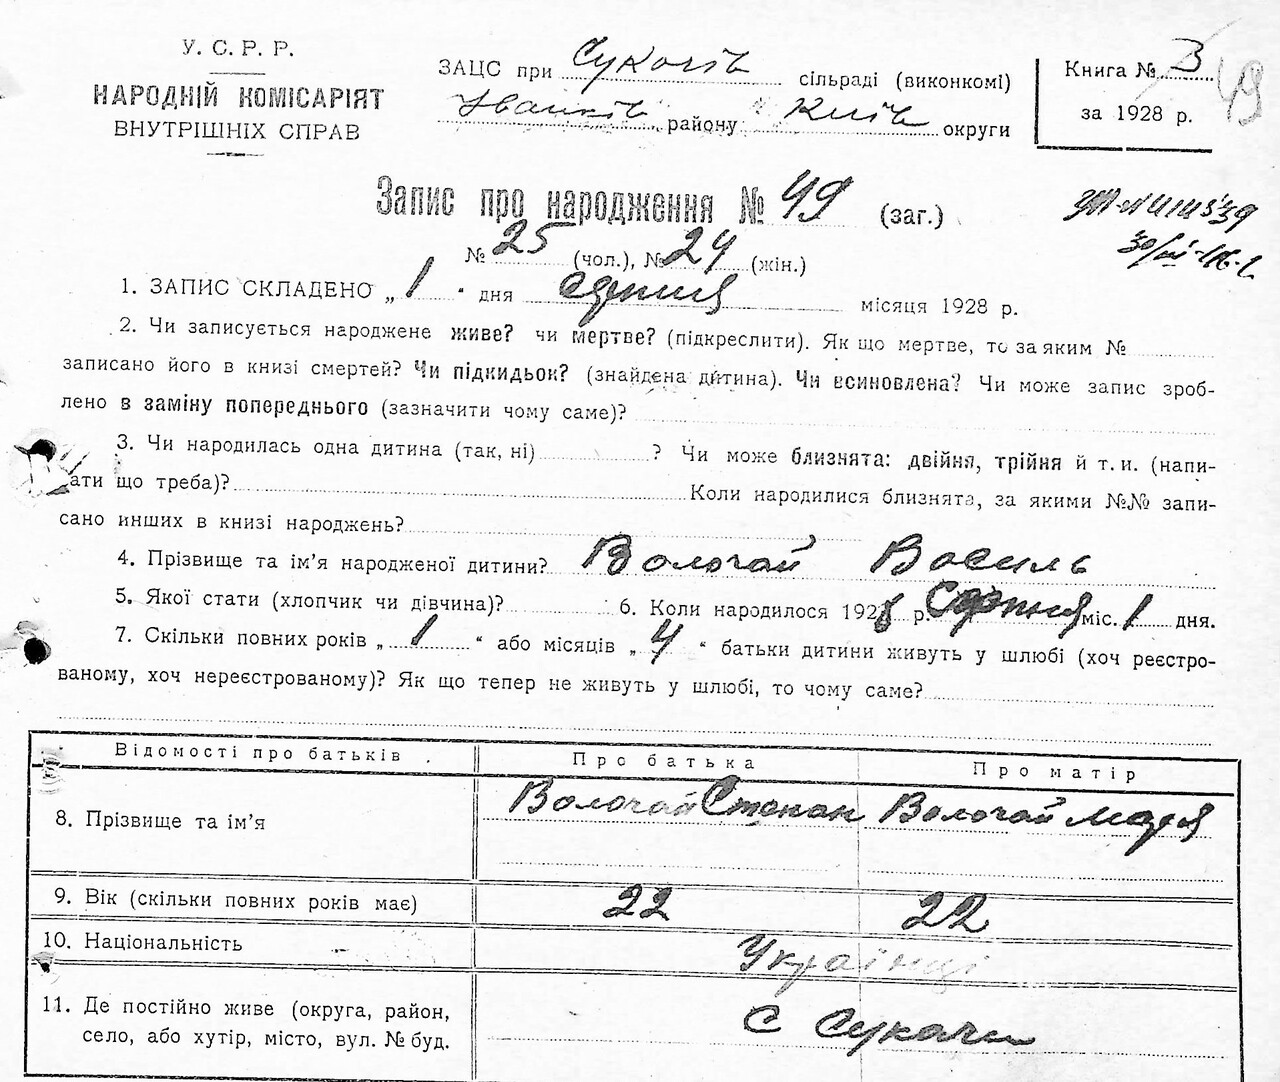 У. С. Р. Р.
НАРОДНІЙ КОМІСАРІЯТ
ВНУТРІШНІХ СПРАВ
ЗАЦС при Сукачів сільраді (виконкомі)
Іванків району Київ округи
Книга № 3
за 1928 р.
49
Запис про народження № 49 (заг.)
№ 25 (чол.), № 24 (жін.)
1. ЗАПИС СКЛАДЕНО „ 1 “ дня серпня місяця 1928 р.
2. Чи записується народжене живе? чи мертве? (підкреслити). Як що мертве, то за яким №
записано його в книзі смертей? Чи підкидьок? (знайдена дитина). Чи всиновлена? Чи може запис зроб-
лено в заміну попереднього (зазначити чому саме)?
3. Чи народилась одна дитина (так, ні) ? Чи може близнята: двійня, трійня й т. и. (напи-
сати що треба)? Коли народилися близнята, за якими №№ запи-
сано инших в книзі народжень?
4. Прізвище та ім'я народженої дитини? Волочай Василь
5. Якої стати (хлопчик чи дівчина)? 6. Коли народилося 1928 р. Серпня міс. 1 дня.
7. Скільки повних років „ 1 “ або місяців „ 4 “ батьки дитини живуть у шлюбі (хоч реєстро-
ваному, хоч нереєстрованому)? Як що тепер не живуть у шлюбі, то чому саме?
Відомості про батьків Про батька Про матір
8. Прізвище та ім'я Волочай Степан Волочай Марія
9. Вік (скільки повних років має) 22 22
10. Національність Українці
11. Де постійно живе (округа, район,
село, або хутір, місто, вул. № буд. С Сукачи